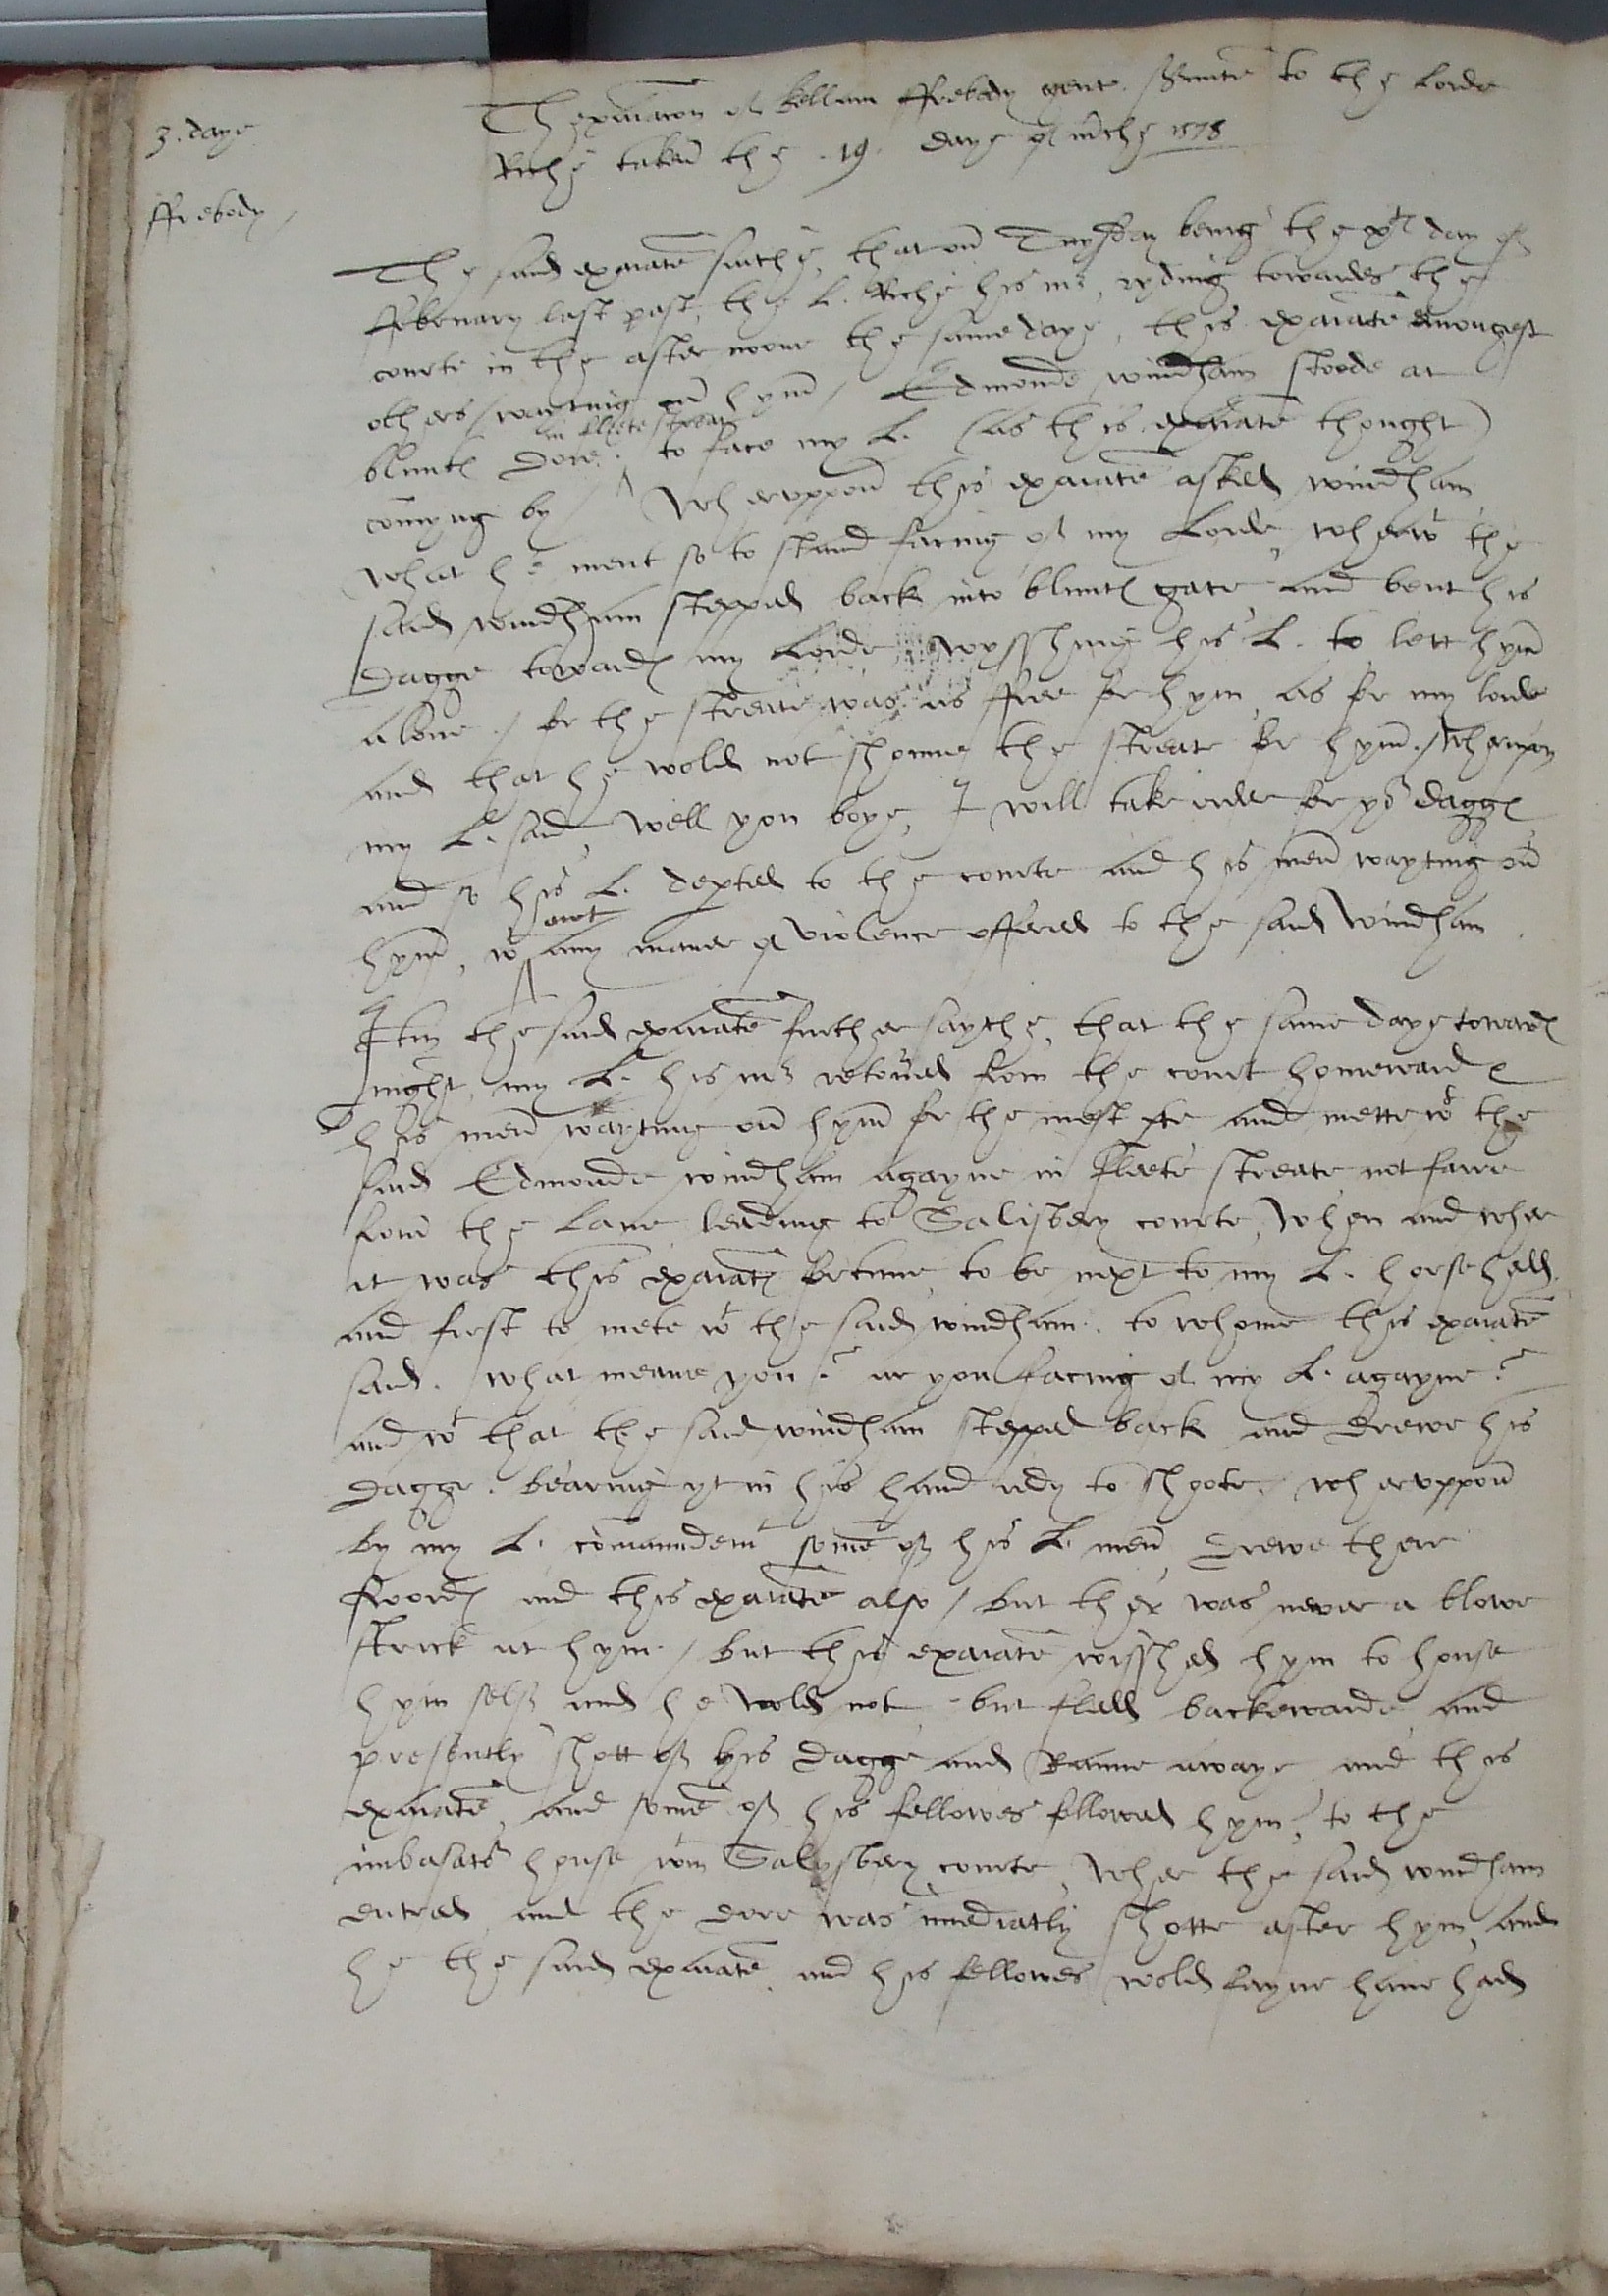 Thexaiacon of Kellam ffrebody gent. servante to the Lorde
Riche taken the .19. daye of mche 1578
3. daye
ffrebody /
The said exaiate saithe, that on Tuysday being the xth day of
ffebruary last past, the L. Riche his mr, ryding towardes the
courte in the after noone the same daye, this exaiate amongest
others / wayting on hym / Edmonde windham stoode at
in fflete streat
blunts dore. ^ to face my L. (as this exaiate thought)
comyng by / Wheruppon this exaiate asked windham
what he ment so to stand facing of my Lorde, wherwt the
said windham stepped back into blunts gate and bent his
Dagge towards my Lorde wysshing his L. to lett hym
alone / for the streate was as ffree for hym as for my lorde
and that he wold not shonne the streate for hym. / Wherupon
my L. said, Well you boye, I will take order for yor daggs
and so his L. depted to the courte and his men wayting on
owt
hym, wt ^ any maner of violence offered to the said Windham
Itm the said exaiate further saythe, that the same daye towards
night, my L. his mr retorned from the court homewards
his men wayting on hym for the most pte and mette wt the
said Edmonde windham agayne in fleete streate not farre
from the Lane leading to Salisbery courte, When and wher
it was this exaiats fortune to be next to my L. horse hedd.
and first to mete wt the said windham. to whome this exaiate
said. what meane you? ar you facing of my L. agayne?
and wt that the said windham stepped back and drewe his
Dagge. bearing yt in his hand redy to shoote / wheruppon
by my L. comaundemt some of his L. men drewe there
swords and this exaiate also / but ther was never a blowe
strick at hym / but this exaiate wisshed hym to house
hym self and he wold not, but fledd backewarde and
presently shott of his dagge and Ranne awaye and this
exaiate, and some of his fellowes followed hym, to the
imbasators house wtin Salysbery courte, Wher the said windham
entred and the dore was imediatly shotte after hym, and
he the said exaiate, and his fellowes wold fayne have had